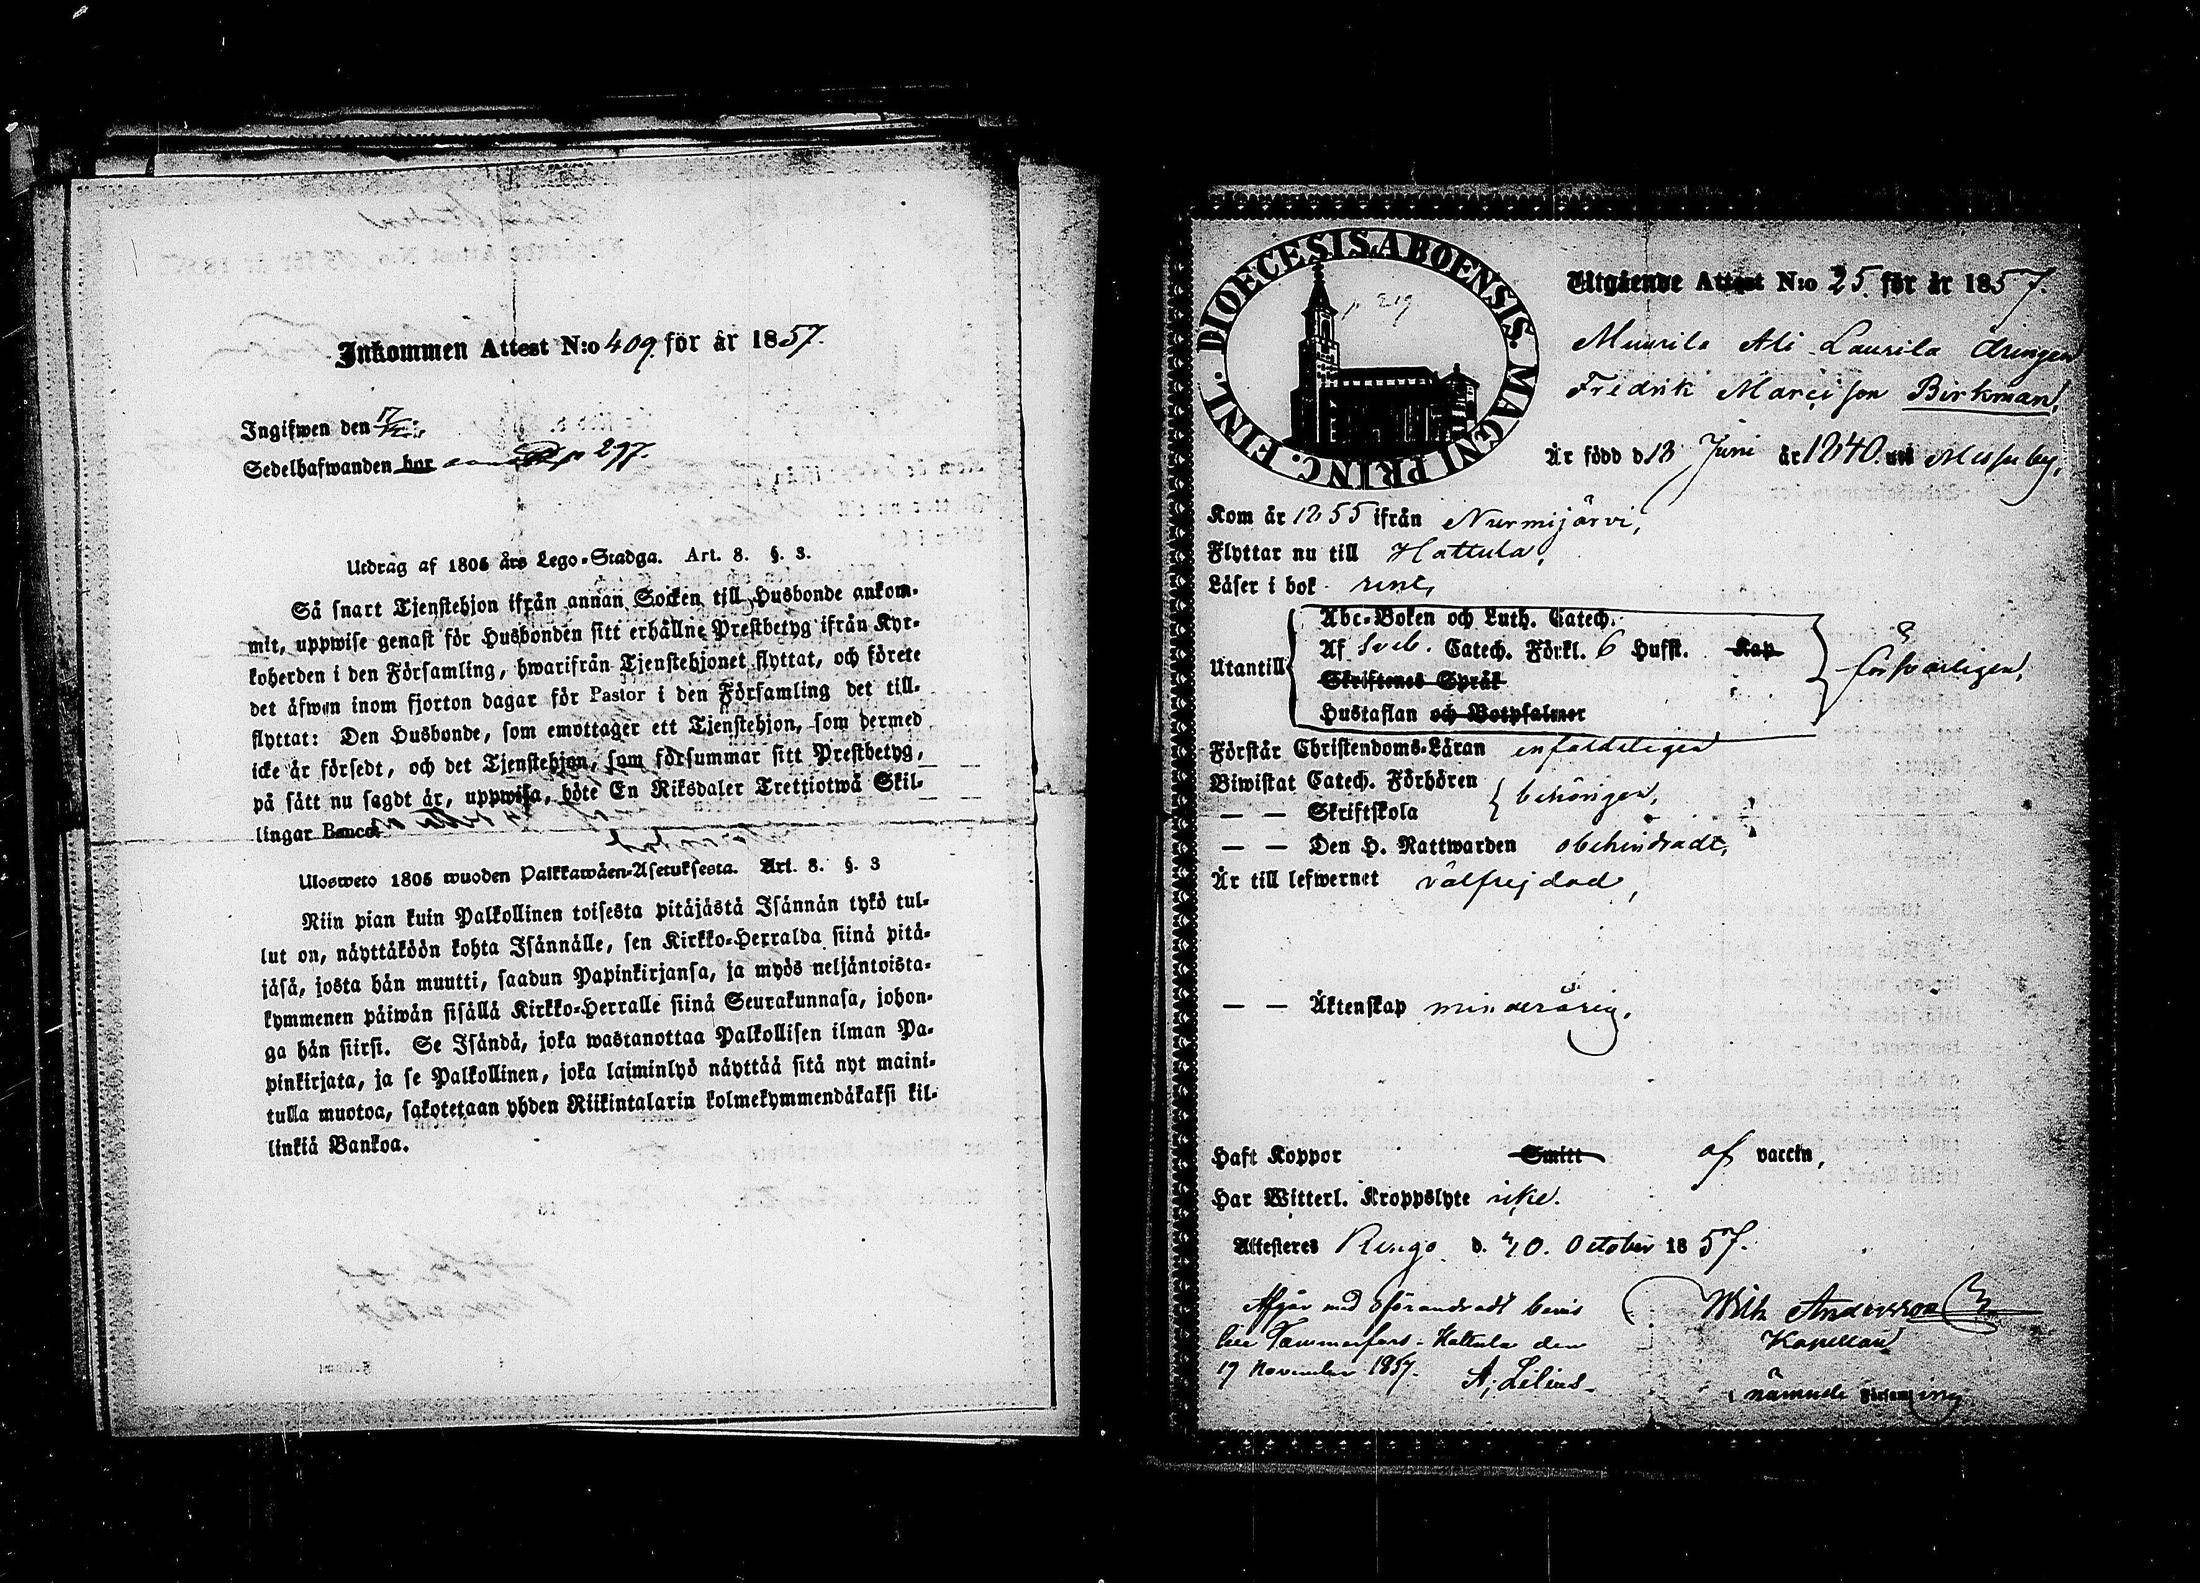 Inkommen Attest N:o 409. för år 1857.
Ingifwen den 17/
Sedelhafwanden bor p 297.
Utdrag af 1805 års Lego-Stadga. Art. 8. §. 3.
Så snart Tjenstehjon ifrån annan Socken till Husbonde ankom-
mit, uppwise genast för Husbonden sitt erhållne Prestbetyg ifrån Kyr-
koherden i den Församling, hwarifrån Tjenstehjonet flyttat, och förete
det äfwen inom fjorton dagar för Pastor i den Församling det till-
flyttat: Den Husbonde, som emottager ett Tjenstehjon, som dermed
icke är försedt, och det Tjenstehjon, som försummar sitt Prestbetyg,
på sätt nu sagdt är, uppwisa, böte En Riksdaler Trettiotwå Skil-
lingar Banco.
Ulosweto 1805 wuoden Palkkawäen-Asetuksesta. Art. 8. §. 3
Niin pian kuin Palkollinen toisesta pitäjästä Isännän tykö tul-
lut on, näyttäköön kohta Isännälle, sen Kirkko-Herralda siinä pitä-
jäsä, josta hän muutti, saadun Papinkirjansa, ja myös neljäntoista-
kymmenen päiwän sisällä Kirkko-Herralle siinä Seurakunnasa, johon-
ga hän siirsi. Se Isändä, joka wastanottaa Palkollisen ilman Pa-
pinkirjata, ja se Palkollinen, joka laiminlyö näyttää sitä nyt maini-
tulla muotoa, sakotetaan yhden Riikintalarin kolmekymmendäkaksi kil-
linkiä Bankoa.
DIOECESIS ABOENSIS. MAGNI PRINC. FINL.
p 219
Utgående Attest N:o 25. för år 1857.
Muurila Ali Laurila drängen
Fredrik Marcisson Birkman,
Är född d 13 Juni år 1840. uti Messuby,
Kom år 1855 ifrån Nurmijärvi,
Flyttar nu till Hattula,
Läser i bok rent,
Utantill
Abc-Boken och Luth. Catech.
Af Sveb. Catech. Förkl. 6 Hufst. Kap
Skriftenes Språk
Hustaflan och Botpsalmer
försvarligen,
Förstår Christendoms-Läran enfaldeligen
Biwistat Catech. Förhören
— — Skriftskola
behörigen,
— — Den H. Nattwarden obehindradt,
Är till lefwernet välfrejdad,
— — Äktenskap minderårig,
Haft Koppor Smitt af vaccin,
Har Witterl. Kroppslyte icke.
Attesteres Rengo d. 20. October 1857.
Wilh Andersson
Kapellan
i nämnde Församling
Afgår med oförändradt bevis
till Tammerfors. Hattula den
17 November 1857.
A. Lilius.